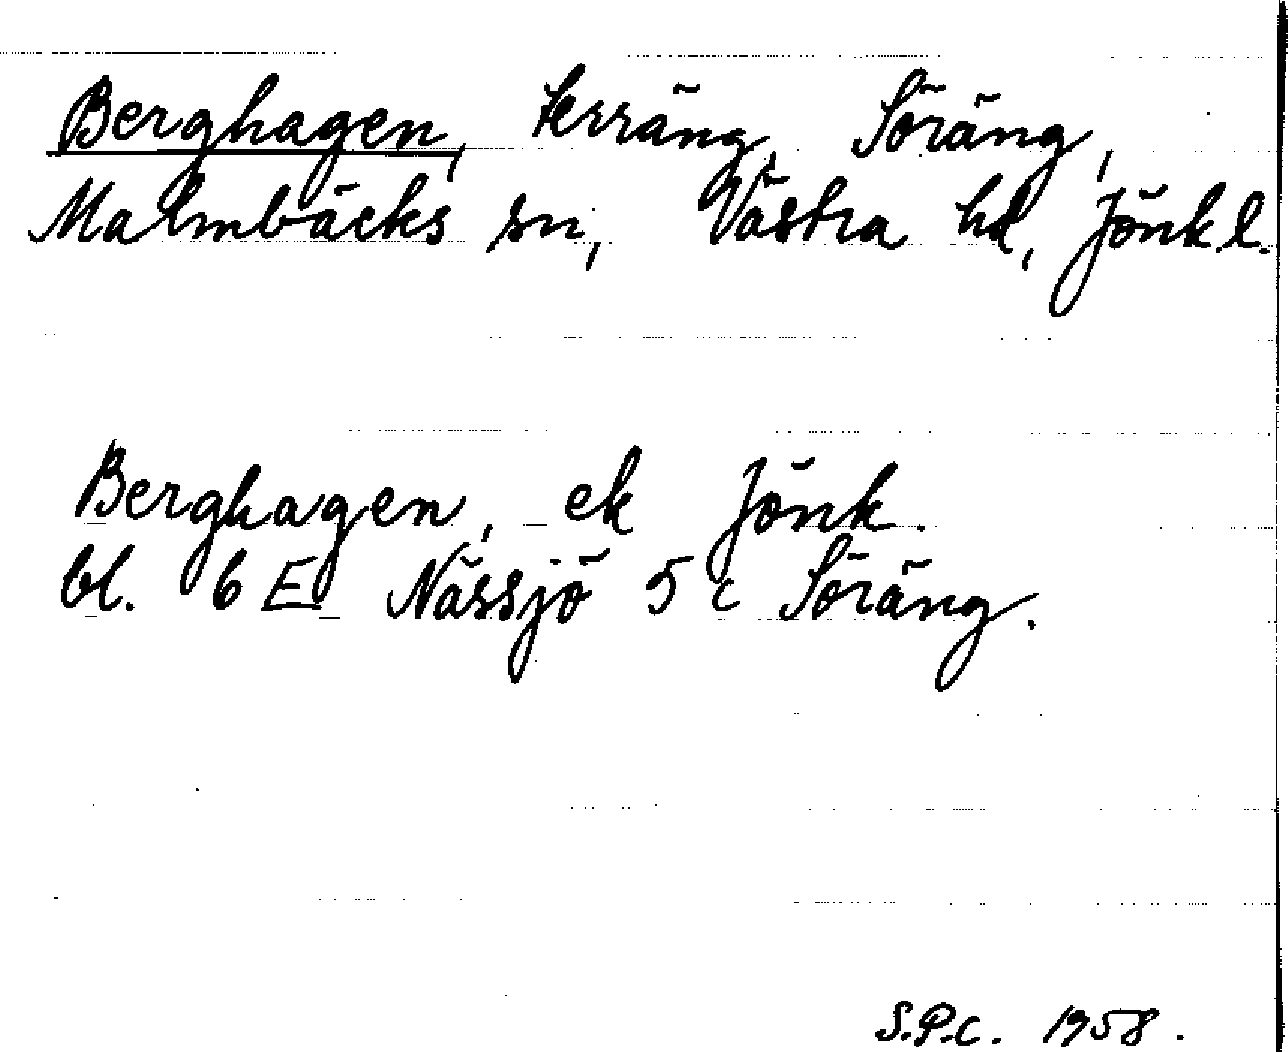 Berghagen, terräng, Söräng,
Malmbäcks sn, Västra hd, Jönk l.
Berghagen, ek Jönk.
bl. 6 E Nässjö 5 c Söräng.
S.P.C. 1958.